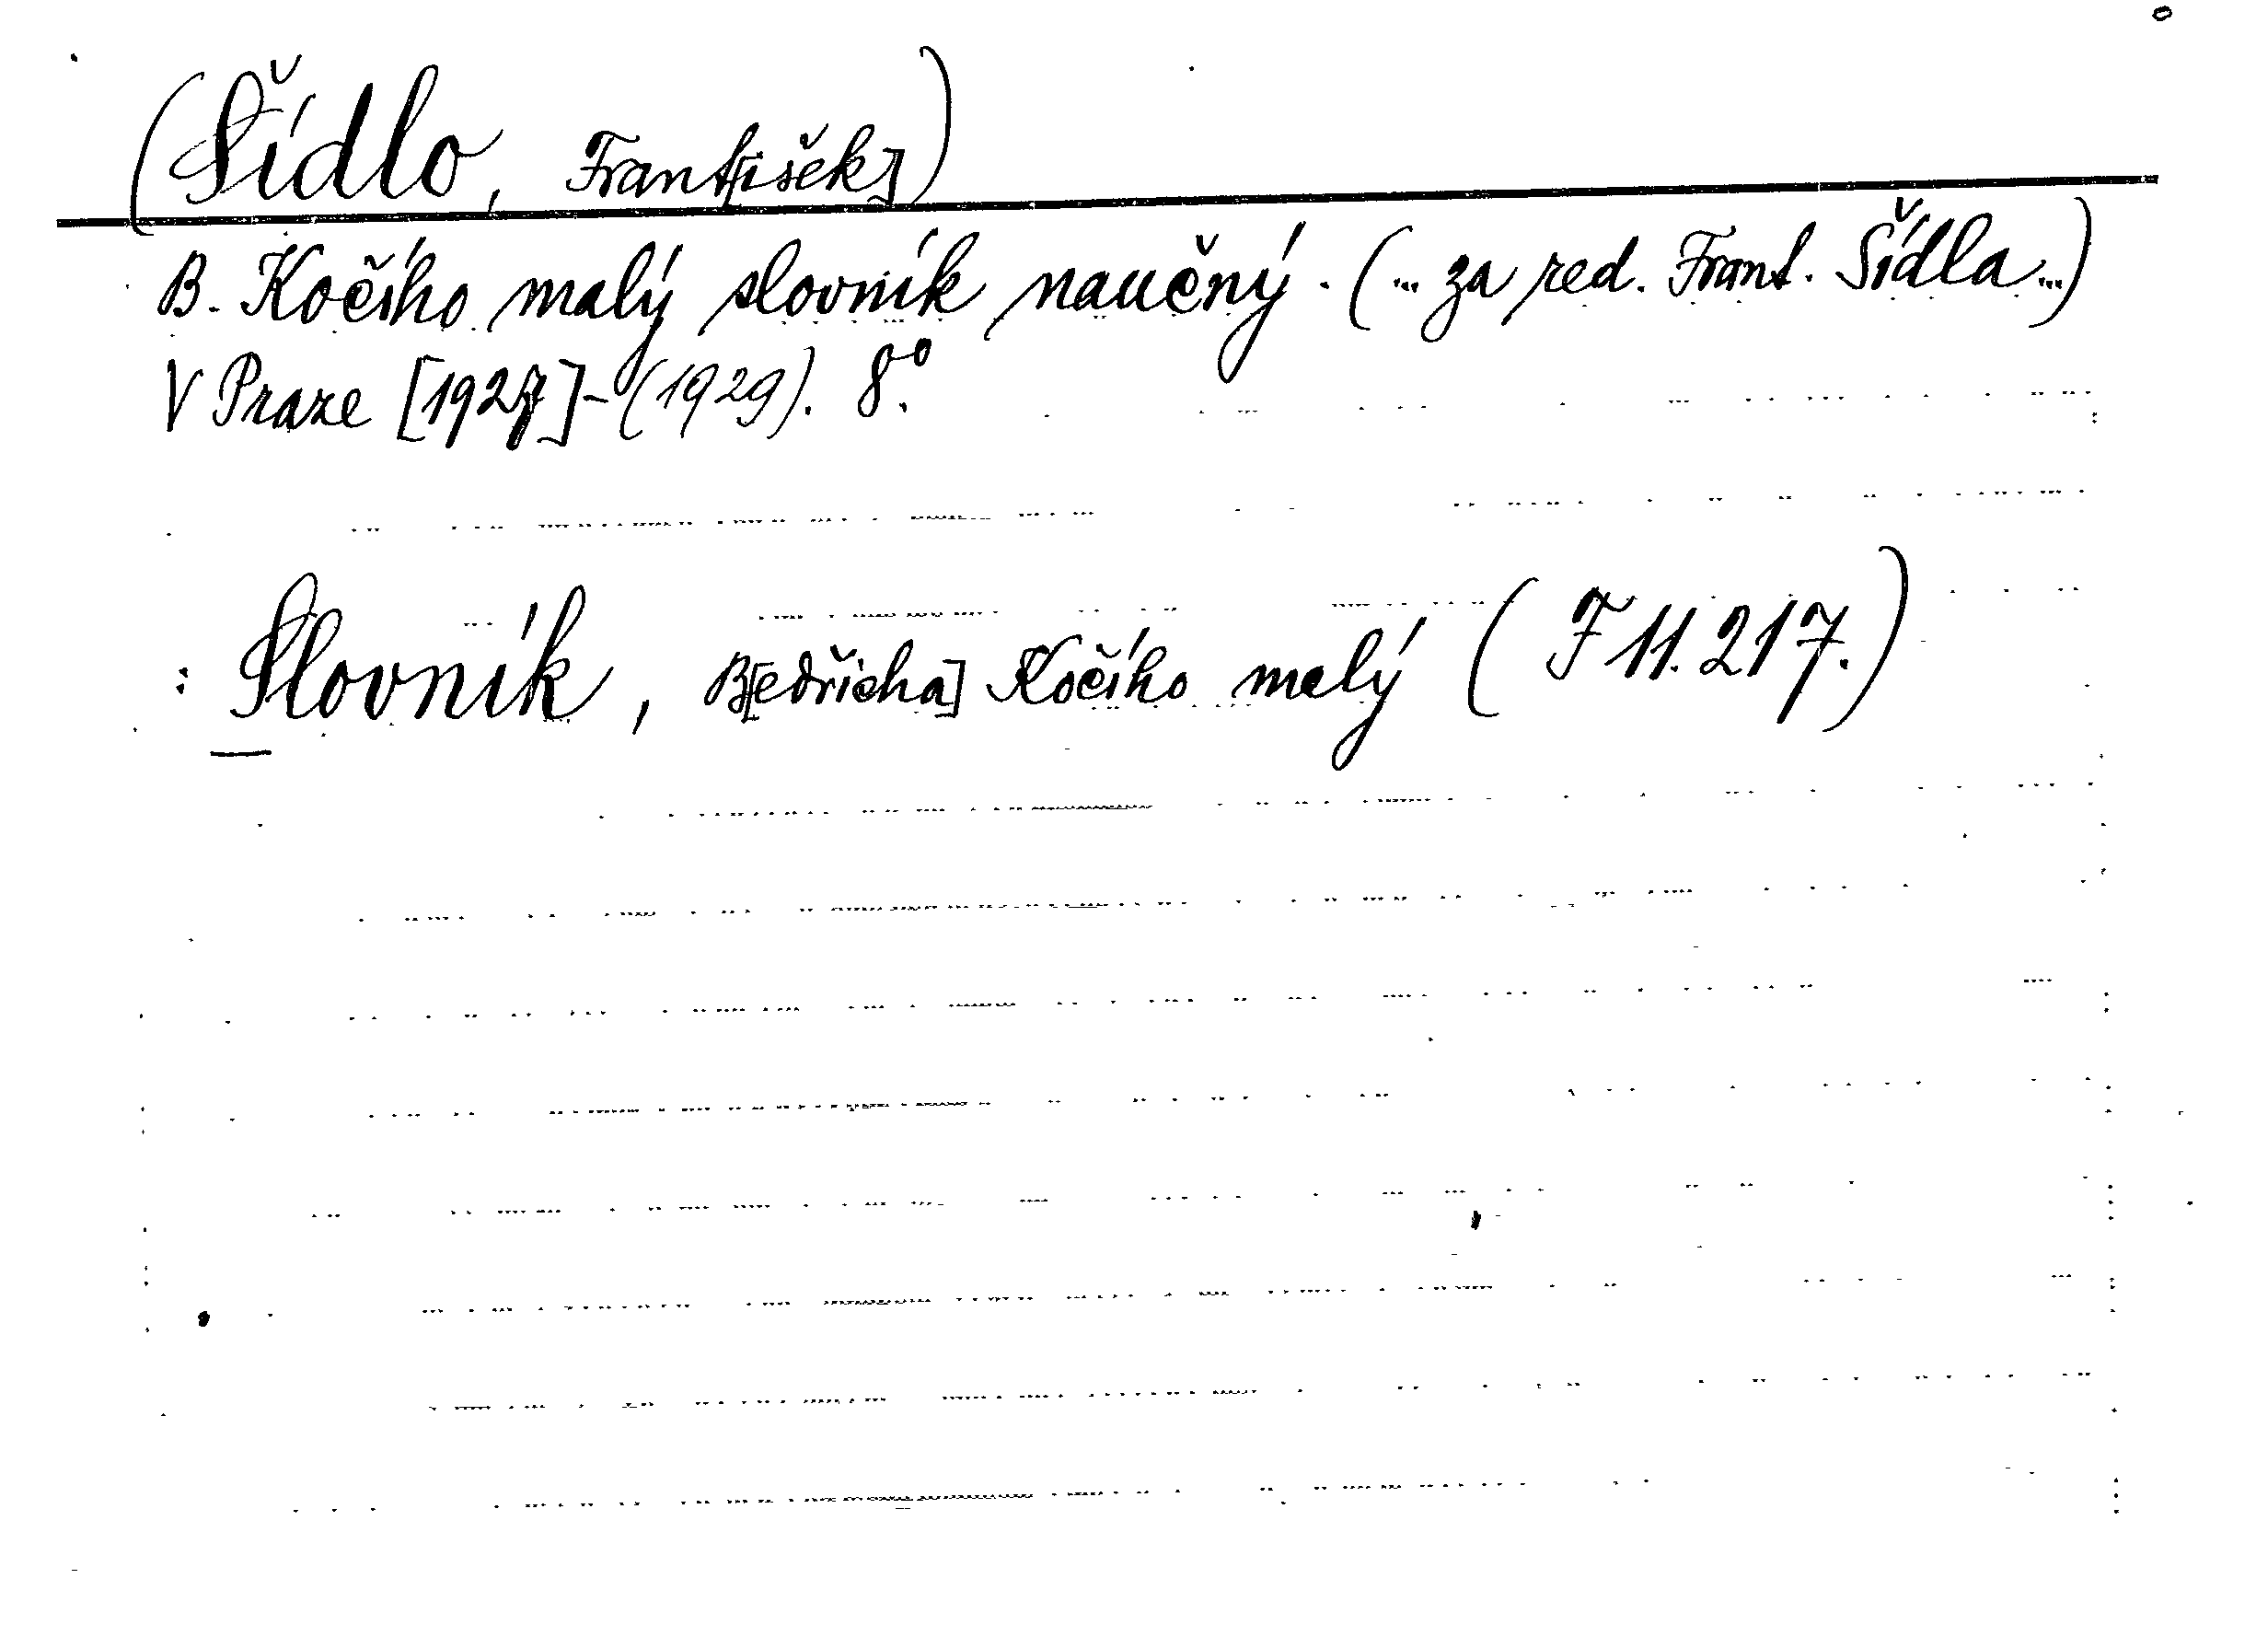 (Šídlo, Frant[išek])
B. Kočího malý slovník naučný. (... za red. Frant. Šídla ...)
V Praze [1927]-(1929). 8°.
: Slovník, B[edřicha] Kočího malý (F 11.217.)